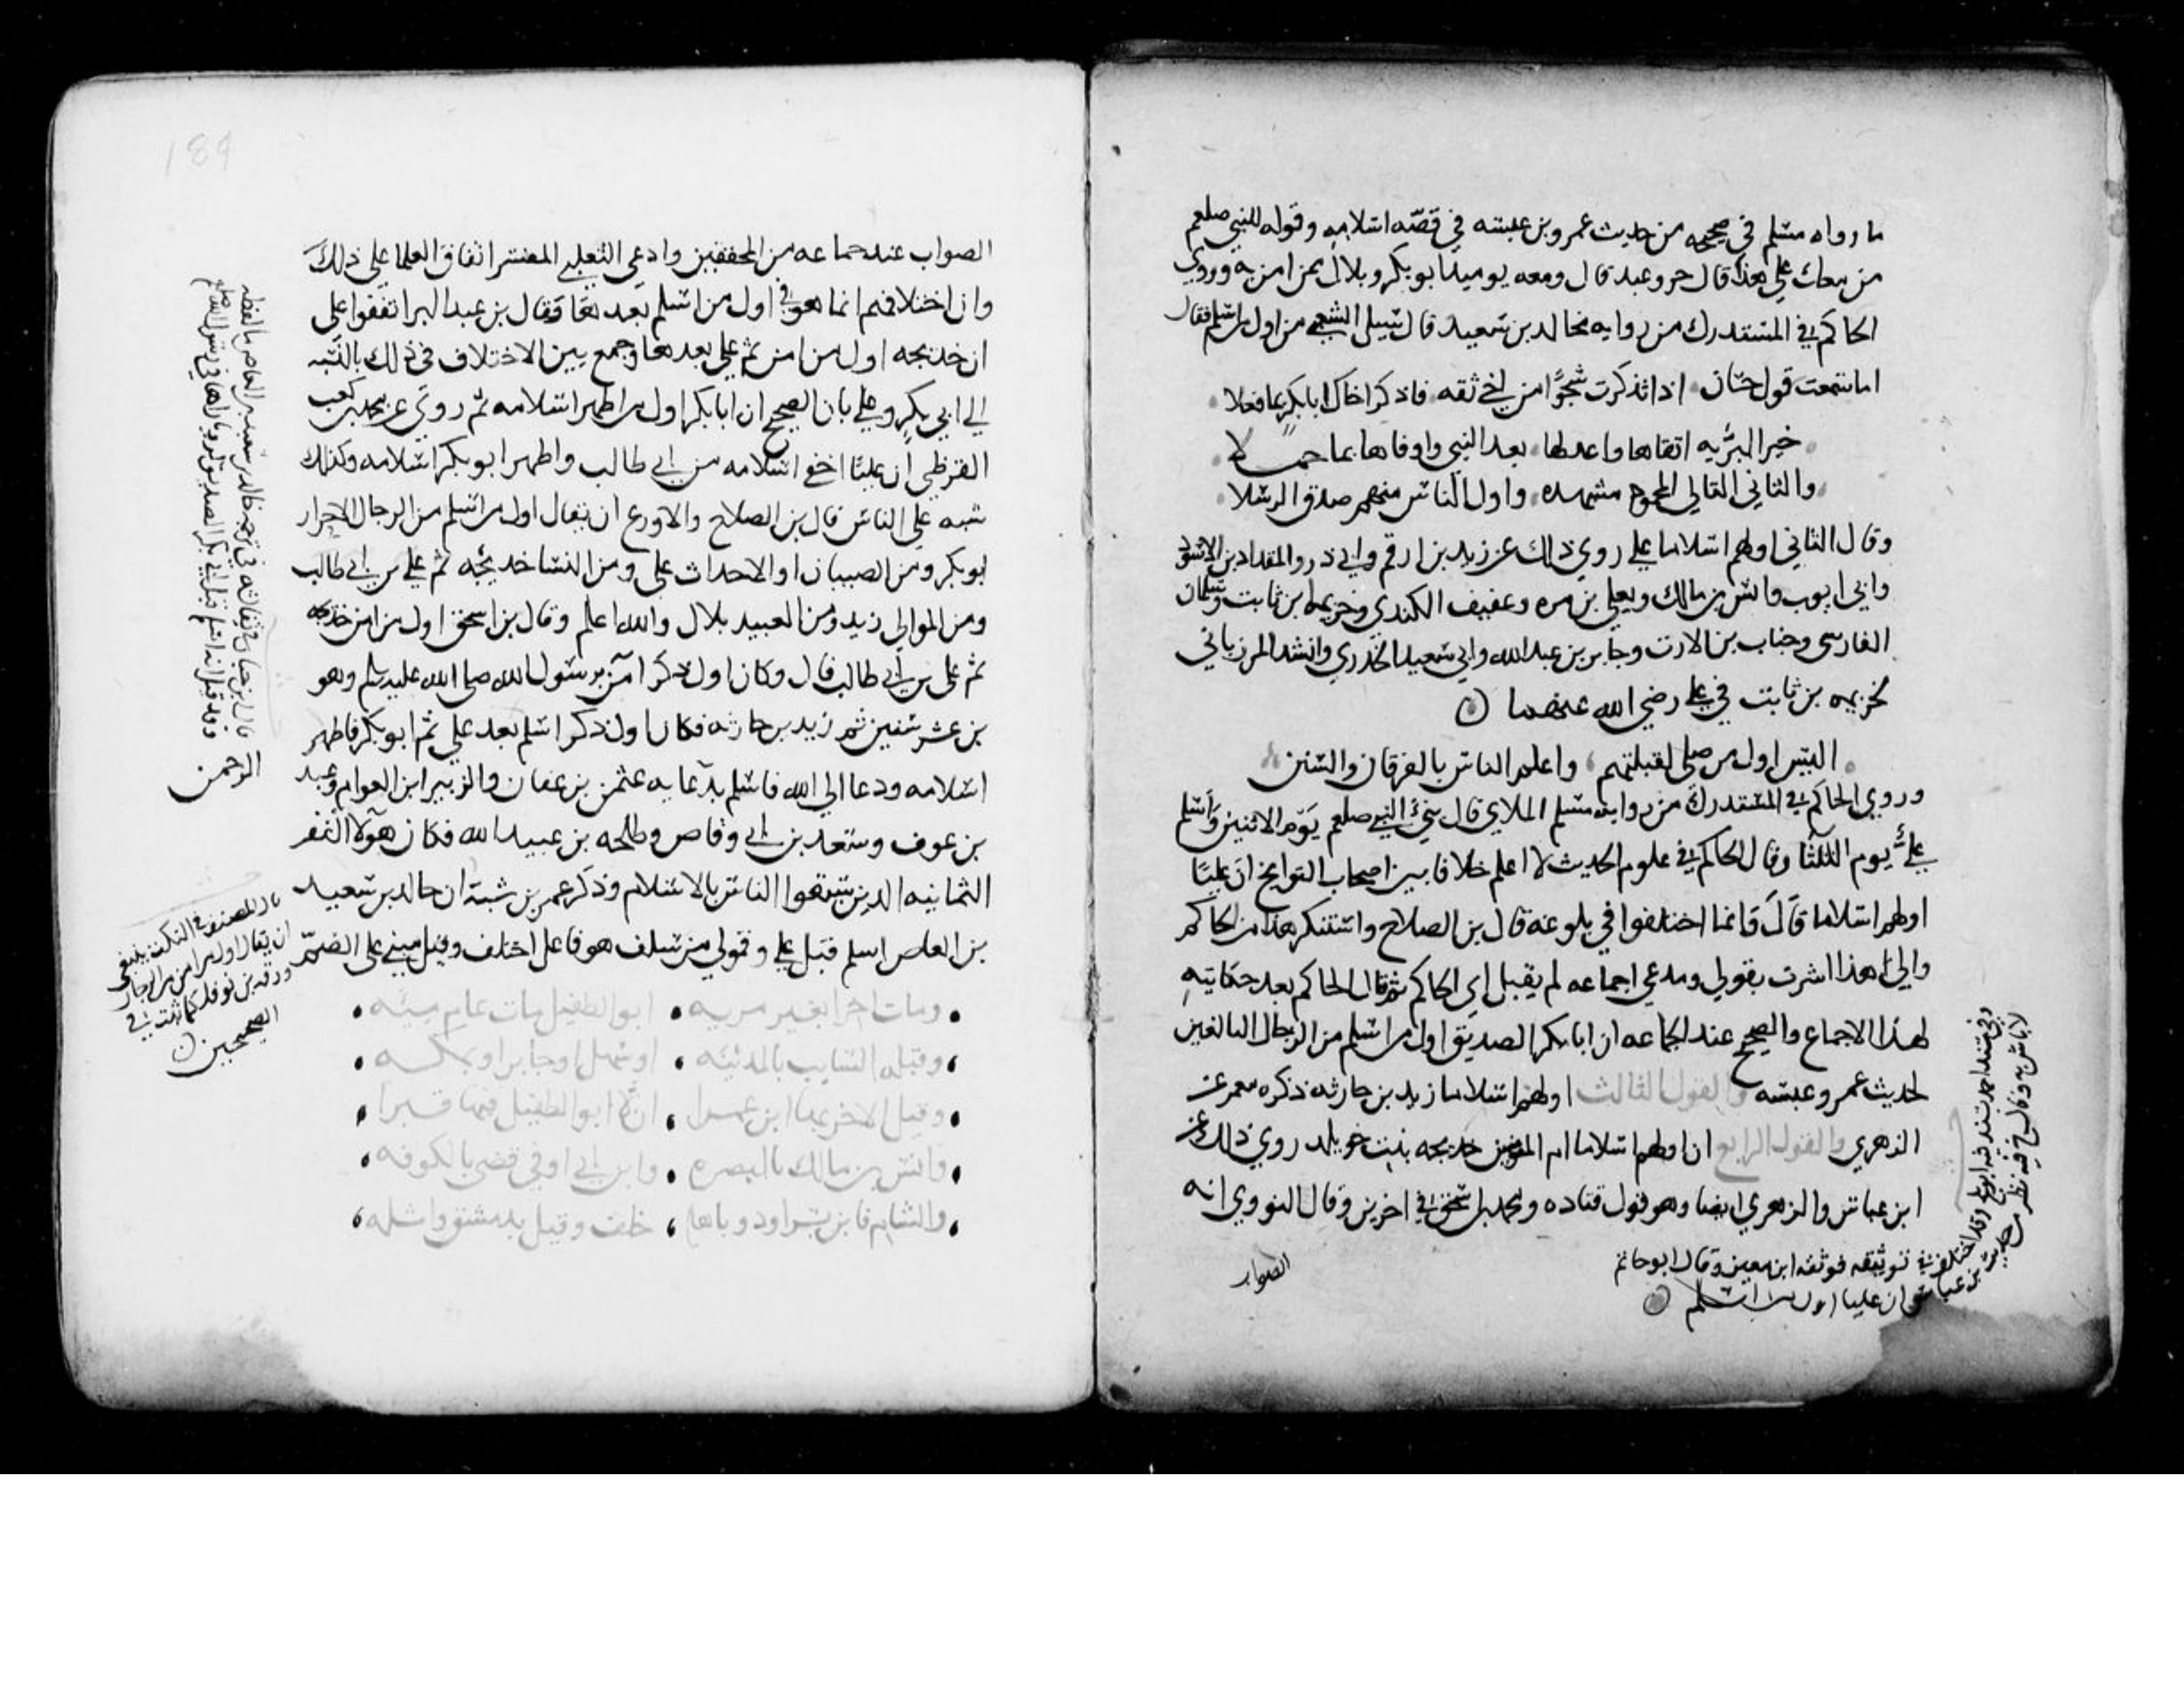 ما رواه مسلم في صحيحه من حديث عمرو بن عبسه في قصه اسلامه وقوله للنبي صلعم
من معك على هذا قال حر وعبد قال ومعه يوميذ ابو بكر وبلال ممن امن به وروي
الحاكم في المستدرك من روايه مجالد بن سعيد قال سيل الشعبي من اول من اسلم فقال
اما سمعت قول حسان اذا تذكرت شجوًا من اخي ثقه فاذكر اخاك ابا بكر بما فعلا
خير البريه اتقاها واعدلها بعد النبي واوفاها بما حملا
والثاني التالي المحمود مشهده واول الناس منهم صدق الرسلا
وقال الثاني اولهم اسلاما علي روي ذلك عن زيد بن ارقم وابي ذر والمقداد بن الاسود
وابي ايوب وانس بن مالك ويعلي بن مره وعفيف الكندي وخزيمه ابن ثابت وسلمان
الفارسي وخباب بن الارت وجابر بن عبد الله وابي سعيد الخدري وانشد المرزباني
لخزيمه بن ثابت في علي رضي الله عنهما
اليس اول من صلى لقبلتهم واعلم الناس بالفرقان والسنن
وروي الحاكم في المستدرك من روايه مسلم الملاي قال نبي النبي صلعم يوم الاثنين واسلم
علي يوم الثلثا وقال الحاكم في علوم الحديث لا اعلم خلافا بين اصحاب التواريخ ان عليا
اولهم اسلاما قال وانما اختلفوا في بلوغه قال بن الصلاح واستنكر هذا من الحاكم
والي هذا اشرت بقولي ومدعي اجماعه لم يقبل اي الحاكم ثم قال الحاكم بعد حكايته
لهذا الاجماع والصحيح عند الجماعه ان ابا بكر الصديق اول من اسلم من الرجال البالغين
لحديث عمرو عبسه والقول الثالث اولهم اسلاما زيد بن حارثه ذكره معمر عن
الزهري والقول الرابع ان اولهم اسلاما ام المومنين خديجه بنت خويلد روي ذلك عن
ابن عباس والزهري ايضا وهو قول قتاده ومحمد بن اسحق في اخرين وقال النووي انه
الصواب
وفي مسند احمد بسند فيه ابو بلج وقد اختلف في توثيقه فوثقه ابن معين وقال ابو حاتم
لا باس به وقال خ فيه نظر من حديث بن عباس ان عليا اول من اسلم
الصواب عند جماعه من المحققين وادعى الثعلبي المفسر اتفاق العلما على ذلك
وان اختلافهم انما هو في اول من اسلم بعدها وقال بن عبد البر اتفقوا على
ان خديجه اول من امن ثم علي بعدها وجمع بين الاختلاف في ذلك بالنسبه
الي ابي بكر وعلي بان الصحيح ان ابا بكر اول من اظهر اسلامه ثم روي عن محمد بن كعب
القرظي ان عليا اخفى اسلامه من ابي طالب واظهر ابو بكر اسلامه وكذلك
شبه على الناس قال بن الصلاح والاورع ان يقال اول من اسلم من الرجال الاحرار
ابو بكر ومن الصبيان او الاحداث علي ومن النسا خديجه ثم علي بن ابي طالب
ومن الموالي زيد ومن العبيد بلال والله اعلم وقال بن اسحق اول من امن خديجه
ثم علي بن ابي طالب قال وكان اول ذكر امن برسول الله صلى الله عليه وسلم وهو
بن عشر سنين ثم زيد بن حارثه فكان اول ذكر اسلم بعد علي ثم ابو بكر فاظهر
اسلامه ودعا الى الله فاسلم بدعايه عثمن بن عفان والزبير ابن العوام وعبد
الرحمن
بن عوف وسعد بن ابي وقاص وطلحه بن عبيد الله فكان هولا النفر
الثمانيه الدين سبقوا الناس بالاسلام وذكر عمر بن شبة ان خالد بن سعيد
بن العاص اسلم قبل علي وقولي من سلف هو فاعل اختلف وقبل مبني على الضم
ومات اخرا بغير مريه ابو الطفيل مات عام ميه
وقبله السايب بالمدينه او سهل او جابر او بمكه
وقيل الاخر بها ابن عمرا ان لا ابو الطفيل فيها قبرا
وانس بن مالك بالبصره وابن ابي اوفي قضى بالكوفه
والشام فابن بسر او ذو باهله خلف وقيل بدمشق واثله
قال بن حبان في ثقاته في ترجمه خالد بن سعيد بن العاص ما لفظه
وقد قيل انه اسلم قبل ابي بكر الصديق لرويا راها في رسول الله صلعم
قال المصنف في النكت ينبغي
ان يقال اول من امن من الرجال
ورقه بن نوفل كما ثبت في
الصحيحين
189